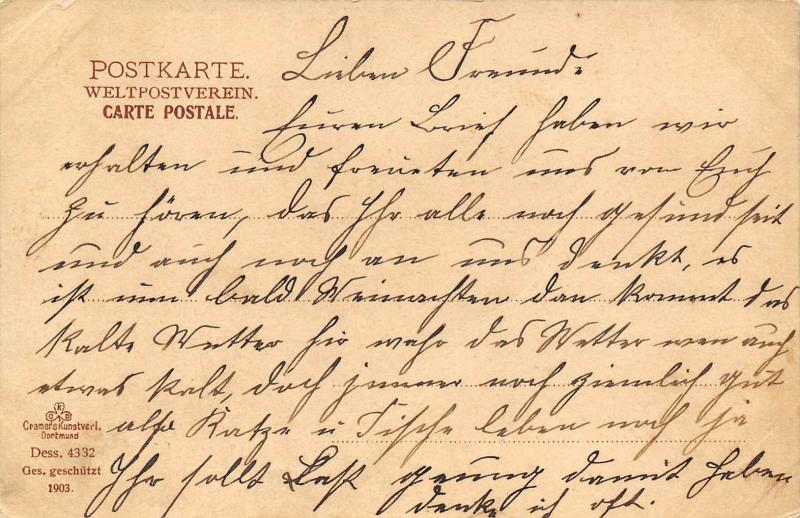 POSTKARTE.
WELTPOSTVEREIN.
CARTE POSTALE.
Lieben Freunde
Euren Brief haben wir
erhalten und freueten uns von Euch
zu hören, das Ihr alle noch gesund seit
und auch noch an uns denkt, es
ist nun bald Weinachten dan kommt das
kalte Wetter hir wahr das Wetter nun auch
etwas kalt, doch immer noch ziemlich gut
alse Katze u Fische leben noch ja
Ihr sollt Last genug damit haben
denke ich oft.
C K D
Cramers Kunstverl.
Dortmund
Dess. 4332
Ges. geschützt
1903.